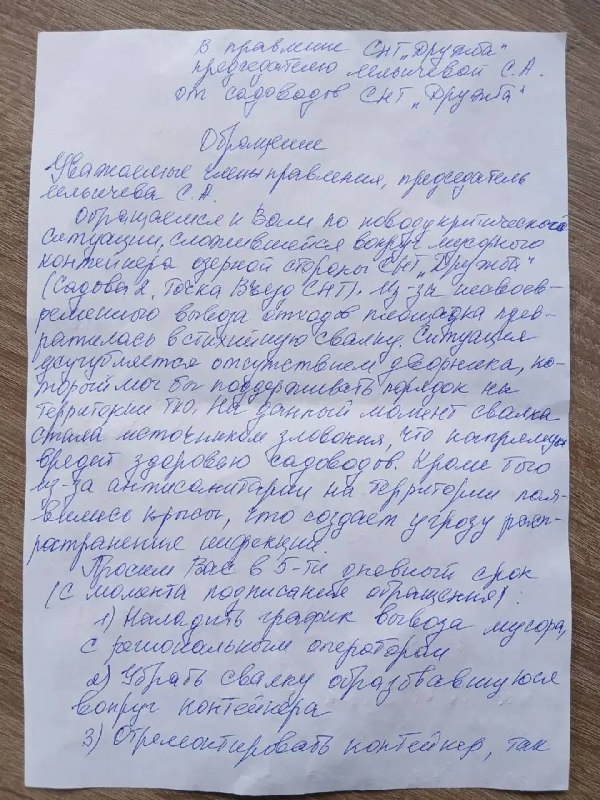 В правление СНТ „Дружба"
председателю Мельичевой С.А.
от садоводов СНТ „Дружба"
Обращение
Уважаемые члены правления, председатель
Мельичева С.А.
Обращаемся к Вам по поводу критической
ситуации, сложившейся вокруг мусорного
контейнера озерной стороны СНТ „Дружба"
(Садовая 2, точка Въезд СНТ). Из-за несвоев-
ременного вывоза отходов площадка прев-
ратилась в стихийную свалку. Ситуация
усугубляется отсутствием дворника, ко-
торый мог бы поддерживать порядок на
территории ТКО. На данный момент свалка
стала источником зловония, что напрямую
вредит здоровью садоводов. Кроме того
из-за антисанитарии на территории поя-
вились крысы, что создает угрозу расп-
ространения инфекций.
Просим Вас в 5-ти дневный срок
(с момента подписания обращения):
1) Наладить график вывоза мусора,
с региональным оператором
2) Убрать свалку образовавшуюся
вокруг контейнера
3) Отремонтировать контейнер, так